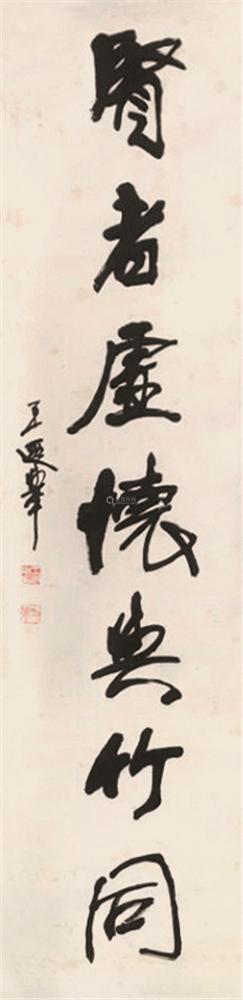 賢者虛懷與竹同
王遐舉